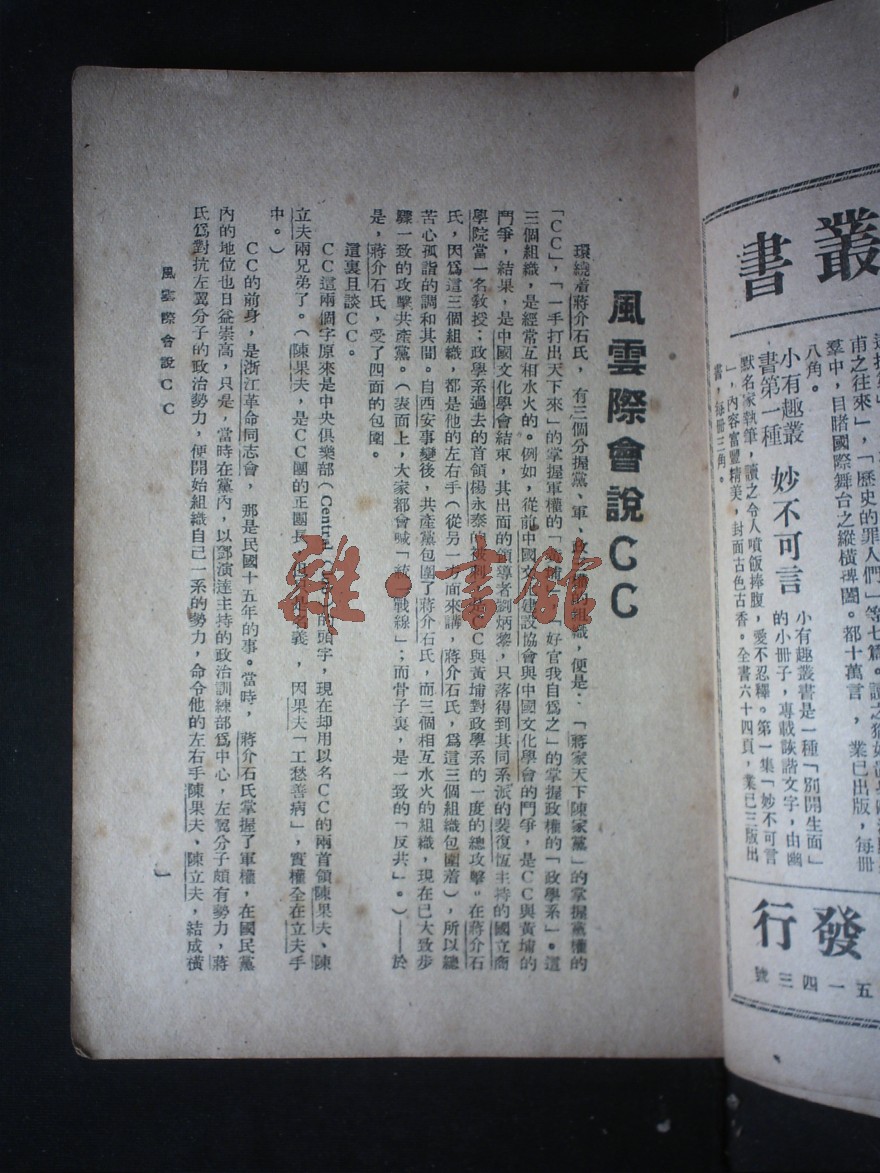 叢
書
甫之往來」，「歷史的罪人們」等七篇。讀之猶如
羣中，目睹國際舞台之縱橫碑闔。都十萬言，業已出版，每冊
八角。
小有趣叢
書第一種
妙不可言
小有趣叢書是一種「別開生面」
的小冊子，專載詼諧文字，由幽
默名家執筆，讀之令人噴飯捧腹，愛不忍釋。第一集「妙不可言
」，內容富豐精美，封面古色古香。全書六十四頁，業已三版出
書，每冊三角。
發行
五一四三號
風雲際會說CC
環繞着蔣介石氏，有三個分握黨、軍、政權的組織，便是：「蔣家天下陳家黨」的掌握黨權的
「CC」，「一手打出天下來」的掌握軍權的「黃埔」，「好官我自爲之」的掌握政權的「政學系」。這
三個組織，是經常互相水火的。例如，從前中國文化建設協會與中國文化學會的鬥爭，是CC與黃埔的
鬥爭，結果，是中國文化學會結束，其出面的領導者劉炳藜，只落得到其同系派的裴復恆主持的國立商
學院當一名教授；政學系過去的首領楊永泰的被刺，是CC與黃埔對政學系的一度的總攻擊。在蔣介石
氏，因爲這三個組織，都是他的左右手（從另一方面來講，蔣介石氏，爲這三個組織包圍着），所以總
苦心孤詣的調和其間。自西安事變後，共產黨包圍了蔣介石氏，而三個相互水火的組織，現在已大致步
驟一致的攻擊共產黨。（表面上，大家都會喊「統一戰線」；而骨子裏，是一致的「反共」。）——於
是，蔣介石氏，受了四面的包圍。
這裏且談CC。
CC這兩個字原來是中央俱樂部（Central Club）的頭字，現在却用以名CC的兩首領陳果夫、陳
立夫兩兄弟了。（陳果夫，是CC團的正團長，但只是名義，因果夫「工愁善病」，實權全在立夫手
中。）
CC的前身，是浙江革命同志會，那是民國十五年的事。當時，蔣介石氏掌握了軍權，在國民黨
內的地位也日益崇高，只是，當時在黨內，以鄧演達主持的政治訓練部爲中心，左翼分子頗有勢力，蔣
氏爲對抗左翼分子的政治勢力，便開始組織自己一系的勢力，命令他的左右手陳果夫、陳立夫，結成橫
風雲際會說CC
一
雜·書館